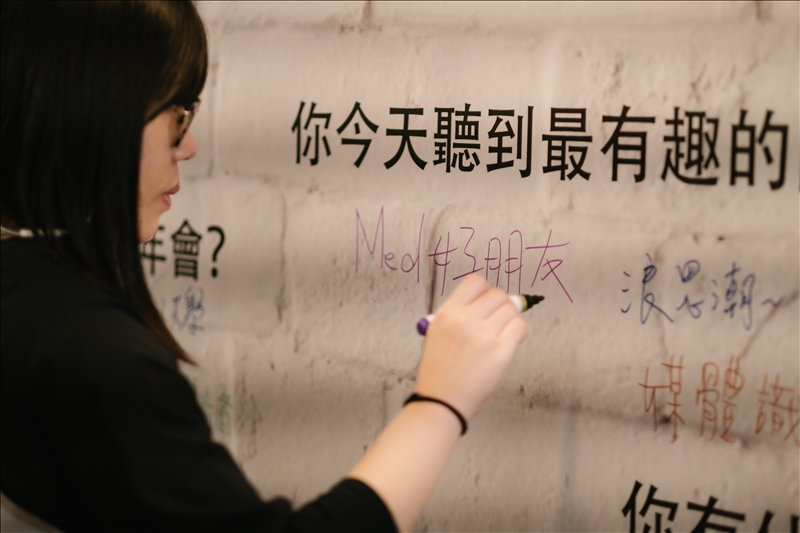 你今天聽到最有趣的
年會?
Med好朋友
浪思潮~
媒體識
你有什